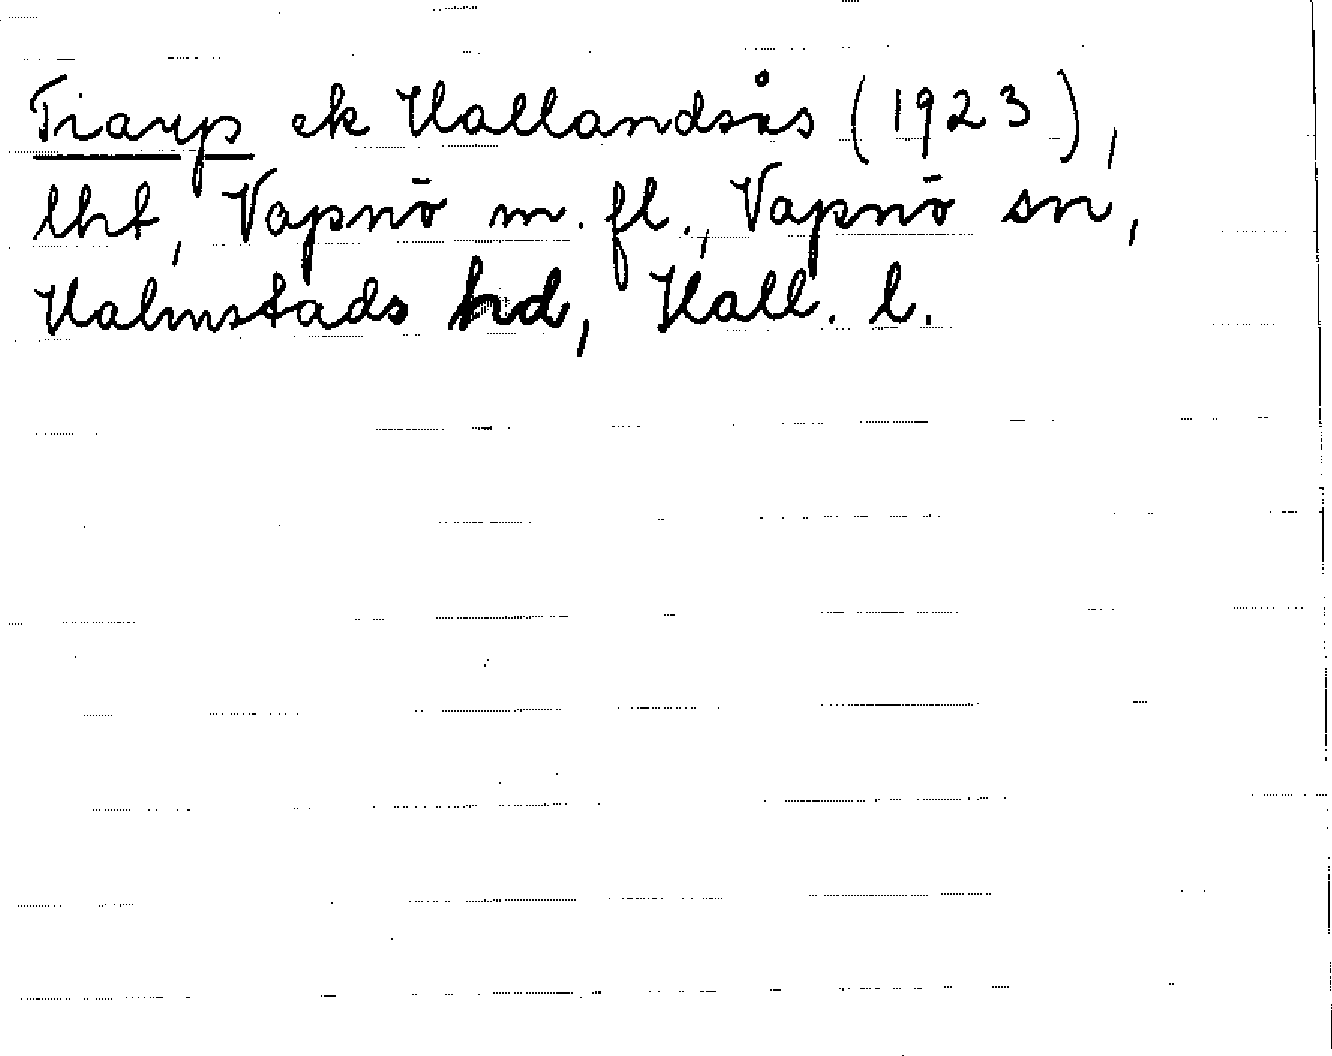 Tiarp ek Hallandsås (1923),
lht, Vapnö m. fl., Vapnö sn,
Halmstads hd, Hall. l.